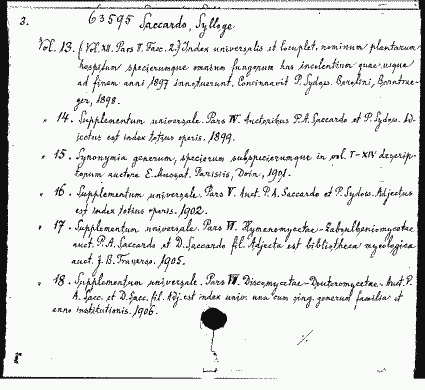 3. 63595 Saccardo, Sylloge
Vol. 13. (Vol. XII. Pars II. Fasc. 2.) Index universalis et locuplet. nominum plantarum
hospitum specierumque omnium fungorum has incolentium quae usque
ad finem anni 1897 innotuerunt. Concinnavit P. Sydow. Berolini, Borntrae-
ger, 1898.
" 14. Supplementum universale. Pars IV. Auctoribus P. A. Saccardo et P. Sydow. Ad-
jectus est index totius operis. 1899.
" 15. Synonymia generum, specierum subspecierumque in vol. I-XIV descrip-
torum auctore E. Mussat. Parisiis, Doin, 1901.
" 16. Supplementum universale. Pars V. Auct. P. A. Saccardo et P. Sydow. Adjectus
est index totius operis. 1902.
" 17. Supplementum universale. Pars VI. Hymenomycetae-Laboulbeniomycetae
auct. P. A. Saccardo et D. Saccardo fil. Adjecta est bibliotheca mycologica
auct. J. B. Traverso. 1905.
" 18. Supplementum universale. Pars VII. Discomycetae-Deuteromycetae. Auct. P.
A. Sacc. et D. Sacc. fil. Adj. est index univ. una cum sing. generum familia et
anno institutionis. 1906.